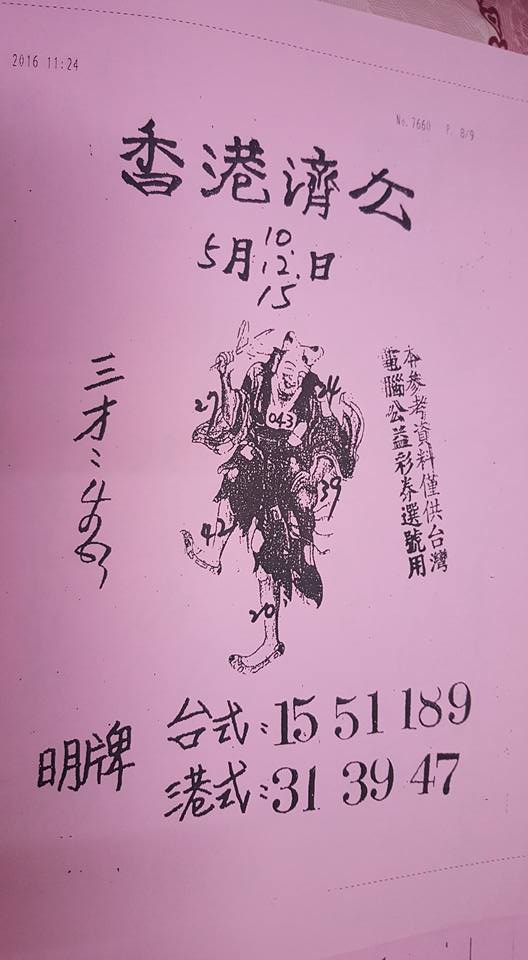 2016 11:24
No.7660 P. 8/9
香港濟公
5月10.12.15日
27
24
043
39
42
20
三才:
本參考資料僅供台灣
電腦公益彩券選號用
明牌
台式:15 51 189
港式:31 39 47